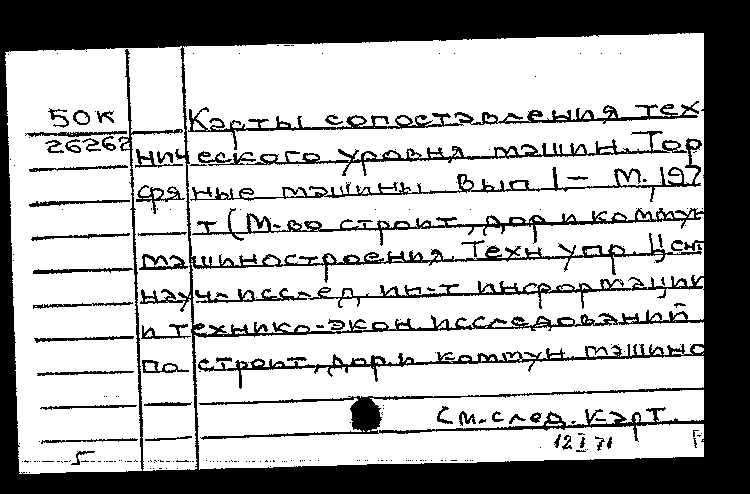 50К Карты сопоставления тех-
26262 нического уровня машин. Тор
фряные машины Вып 1 – М., 197
т (М-во строит., дор и коммун
машиностроения. Техн упр. Цент
науч-исслед. ин-т информации
и технико-экон исследований
по строит., дор. и коммун. машино
См. след. карт.
12 I 71
5